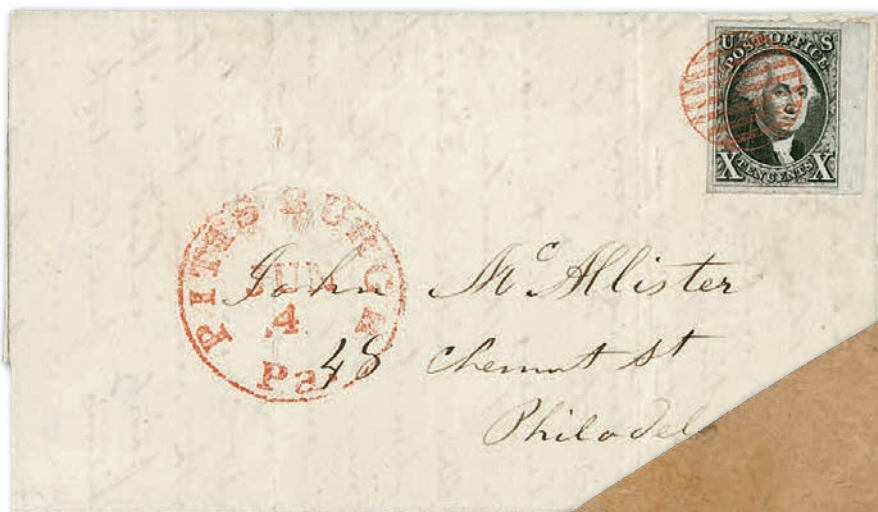 U S
POST OFFICE
X TEN CENTS X
PITTSBURGH
JUN
4
Pa.
John McAllister
48 Chesnut St
Philadel